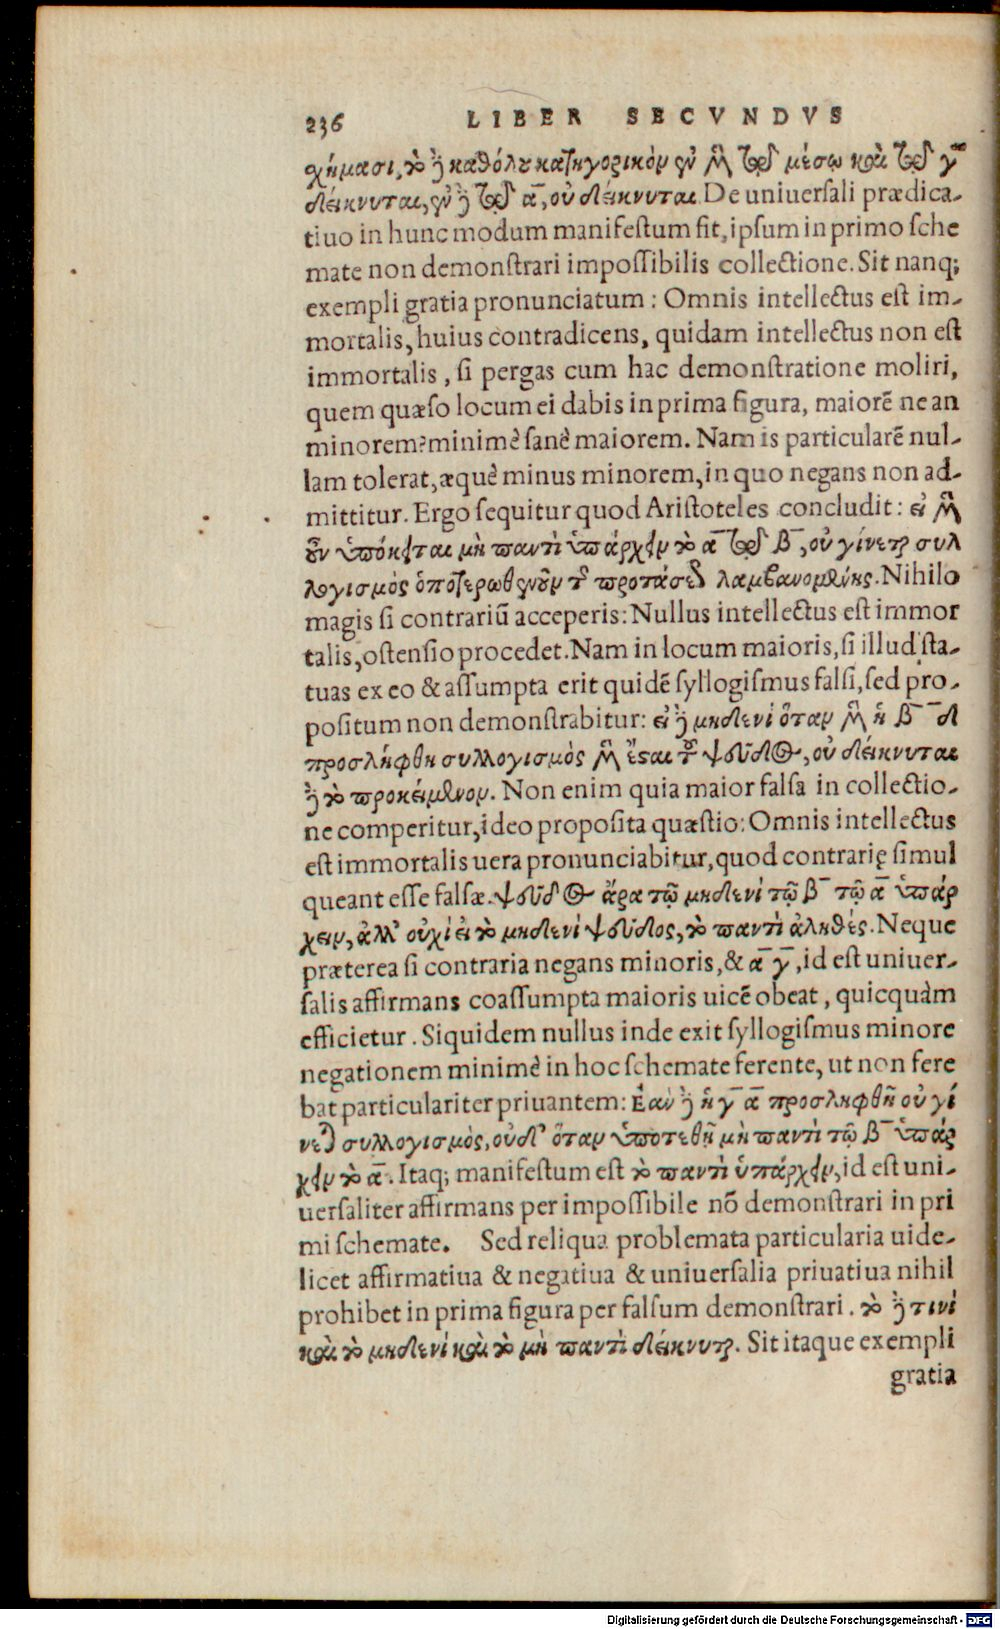 236 LIBER SECVNDVS
χήμασι, τὸ δὲ καθόλου κατηγορικὸν ἐν μὲν τῷ μέσῳ καὶ τῷ γ̄
δείκνυται, ἐν δὲ τῷ ᾱ, οὐ δείκνυται. De uniuersali prædica-
tiuo in hunc modum manifestum fit, ipsum in primo sche
mate non demonstrari impossibilis collectione. Sit nanq;
exempli gratia pronunciatum: Omnis intellectus est im-
mortalis, huius contradicens, quidam intellectus non est
immortalis, si pergas cum hac demonstratione moliri,
quem quæso locum ei dabis in prima figura, maiorē ne an
minorem? minimè sanè maiorem. Nam is particularē nul-
lam tolerat, æquè minus minorem, in quo negans non ad-
mittitur. Ergo sequitur quod Aristoteles concludit: εἰ μὲν
οὖν ὑπόκειται μὴ παντὶ ὑπάρχειν τὸ ᾱ τῷ β̄, οὐ γίνεται συλ
λογισμὸς ὁποτερωθενοῦν τῆς προτάσεως λαμβανομένης. Nihilo
magis si contrariū acceperis: Nullus intellectus est immor
talis, ostensio procedet. Nam in locum maioris, si illud sta-
tuas ex eo & assumpta erit quidē syllogismus falsi, sed pro-
positum non demonstrabitur: εἰ δὲ μηδενὶ ὅταν μὲν ἡ β̄ δ̄
προσλήφθη συλλογισμὸς μὲν ἔσται τοῦ ψεῦδος, οὐ δείκνυται
δὲ τὸ προκείμενον. Non enim quia maior falsa in collectio-
ne comperitur, ideo proposita quæstio: Omnis intellectus
est immortalis uera pronunciabitur, quod contrarię simul
queant esse falsæ. ψεῦδος ἄρα τῷ μηδενὶ τῷ β̄ τῷ ᾱ ὑπάρ
χειν, ἀλλ' οὐχὶ εἰ τὸ μηδενὶ ψεῦδος, τὸ παντὶ ἀληθές. Neque
præterea si contraria negans minoris, & ᾱ γ̄, id est uniuer-
salis affirmans coassumpta maioris uicē obeat, quicquàm
efficietur. Siquidem nullus inde exit syllogismus minore
negationem minimè in hoc schemate ferente, ut non fere
bat particulariter priuantem: Ἐὰν δὲ ἡ γ̄ ᾱ προσληφθῇ οὐ γί
νεται συλλογισμὸς, οὐδ' ὅταν ὑποτεθῇ μὴ παντὶ τῷ β̄ ὑπάρ
χειν τὸ ᾱ. Itaq; manifestum est τὸ παντὶ ὑπάρχειν, id est uni-
uersaliter affirmans per impossibile nō demonstrari in pri
mi schemate. Sed reliqua problemata particularia uide-
licet affirmatiua & negatiua & uniuersalia priuatiua nihil
prohibet in prima figura per falsum demonstrari. τὸ δὲ τινὶ
καὶ τὸ μηδενὶ καὶ τὸ μὴ παντὶ δείκνυται. Sit itaque exempli
gratia
Digitalisierung gefördert durch die Deutsche Forschungsgemeinschaft - DFG